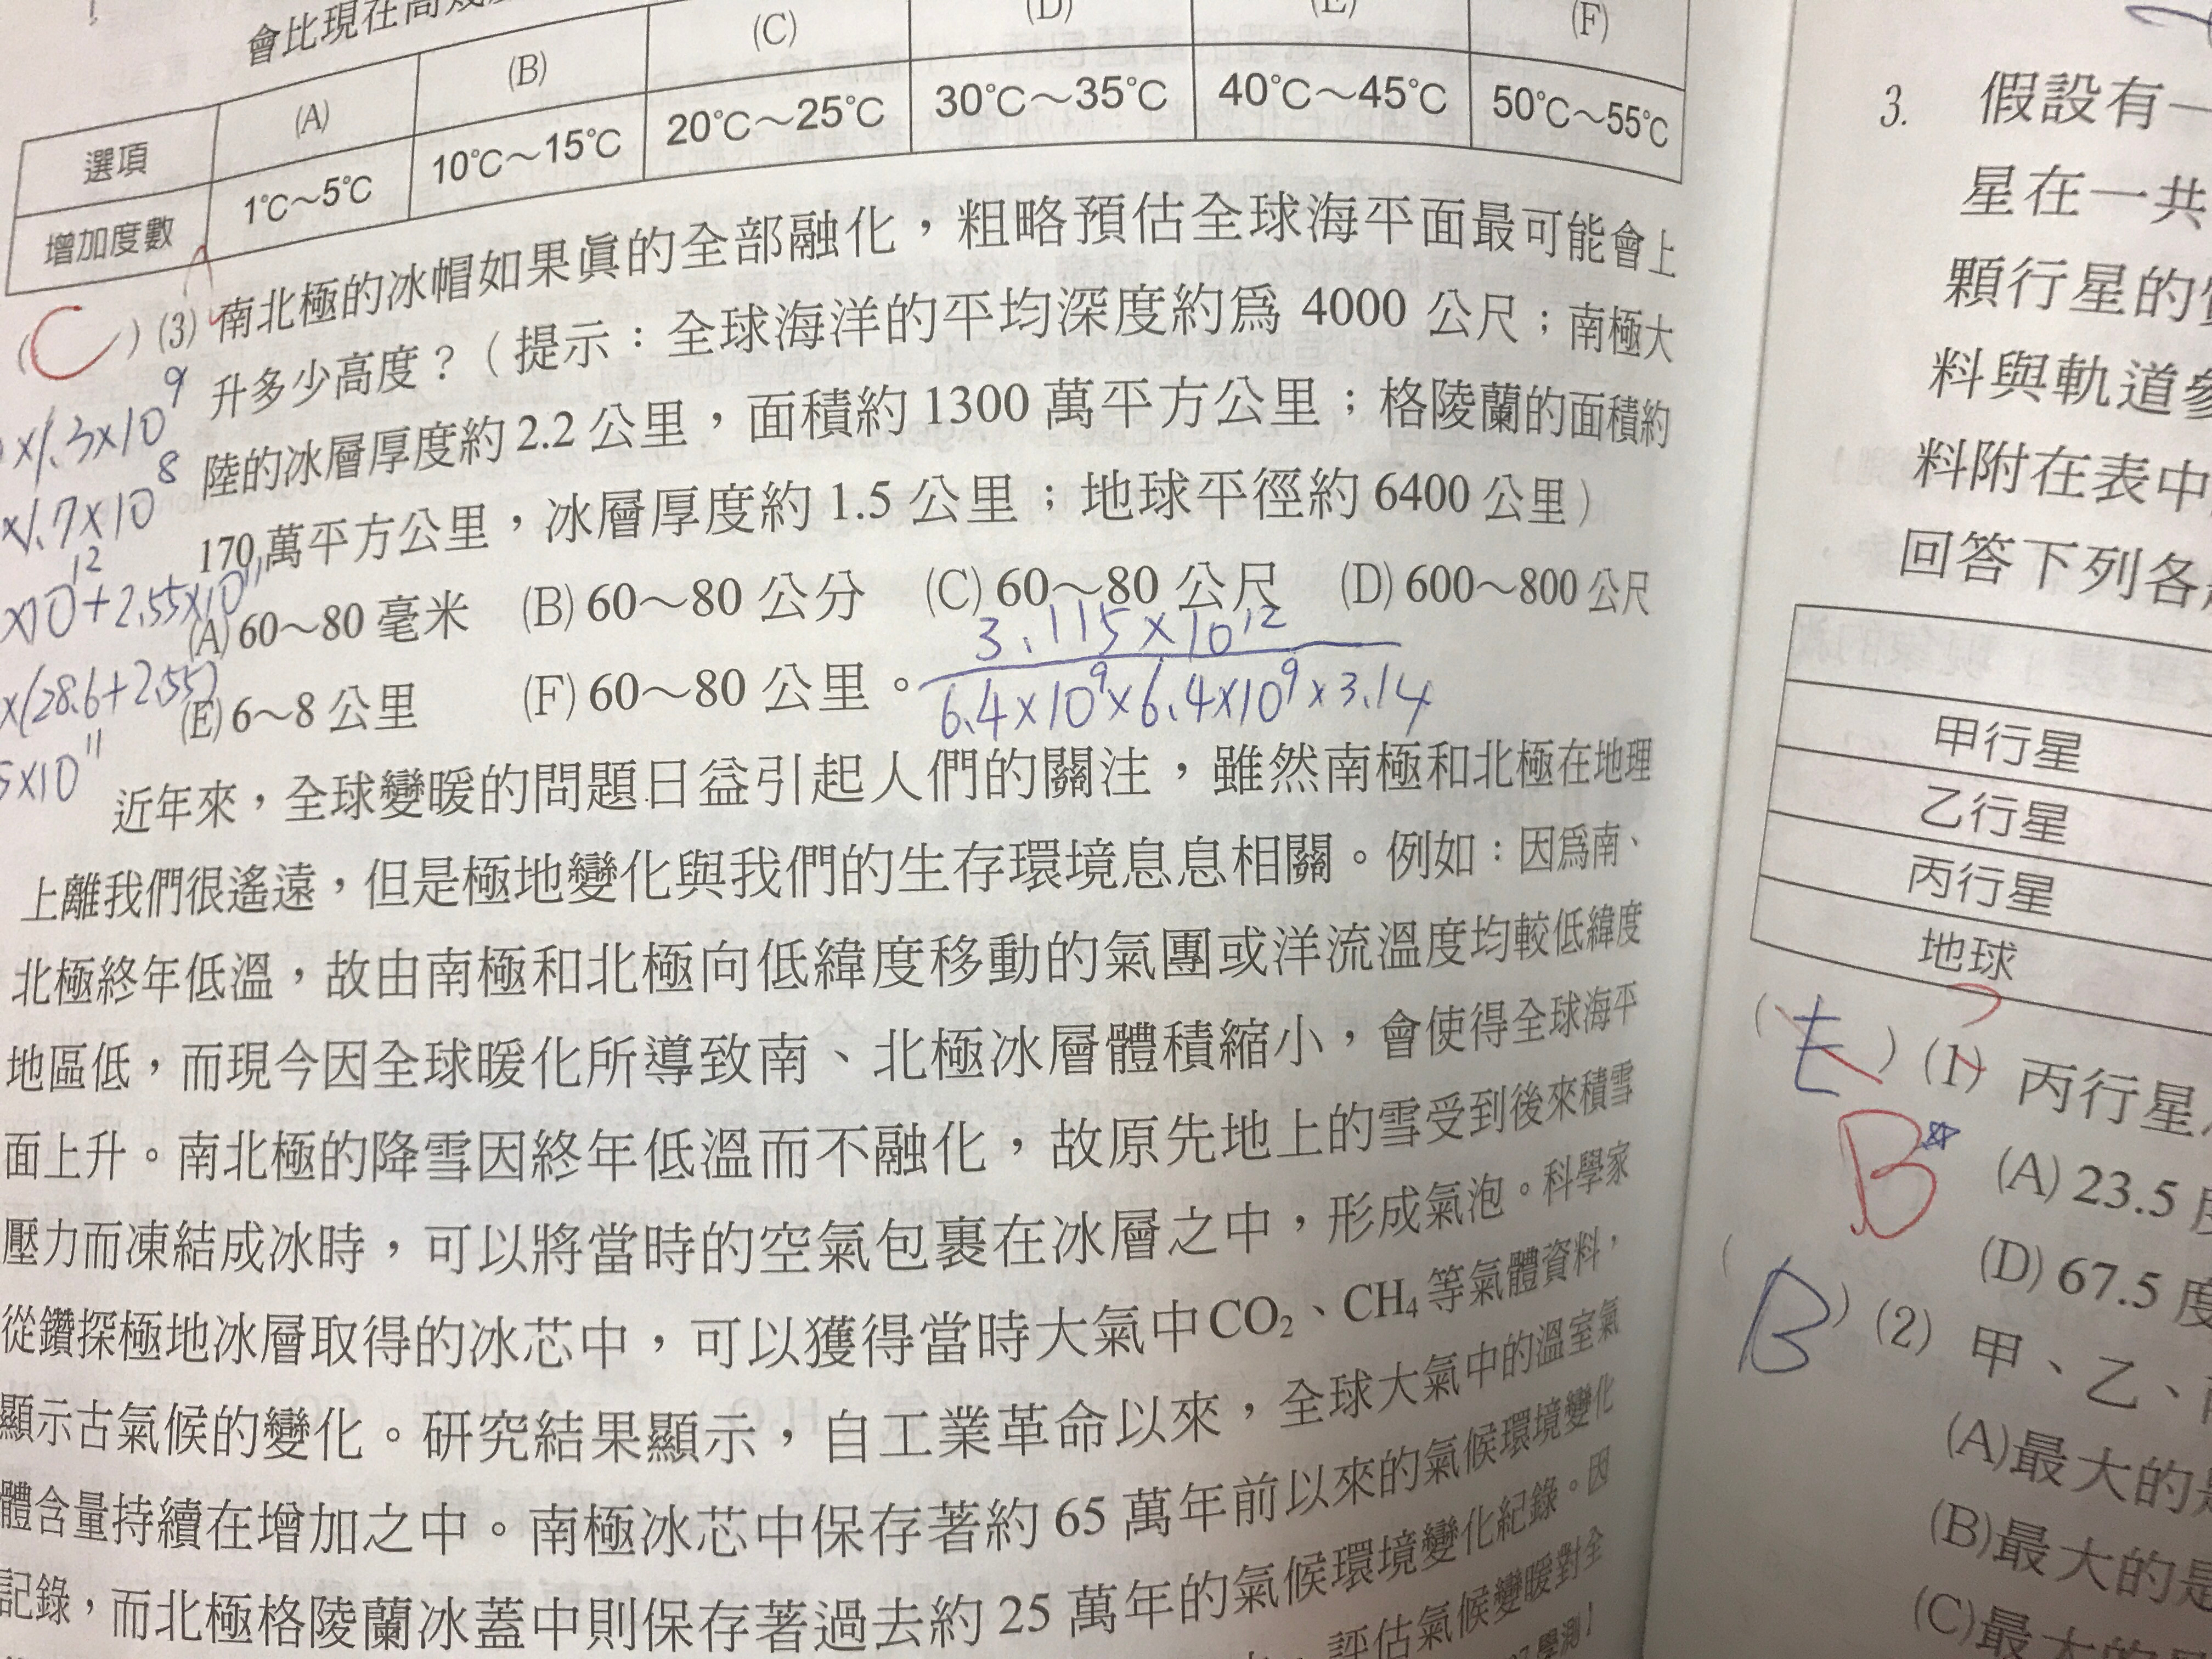 會比現在高幾
(A) (B) (C) (D) (E) (F)
選項
增加度數 1℃~5℃ 10℃~15℃ 20℃~25℃ 30℃~35℃ 40℃~45℃ 50℃~55℃
(C)(3)南北極的冰帽如果眞的全部融化，粗略預估全球海平面最可能會上
升多少高度？（提示：全球海洋的平均深度約爲 4000 公尺；南極大
陸的冰層厚度約 2.2 公里，面積約 1300 萬平方公里；格陵蘭的面積約
170 萬平方公里，冰層厚度約 1.5 公里；地球平徑約 6400 公里）
(A) 60~80 毫米 (B) 60~80 公分 (C) 60~80 公尺 (D) 600~800 公尺
(E) 6~8 公里 (F) 60~80 公里。
x1.3x10^9
x1.7x10^8
x10^12+2.55x10^11
x(28.6+2.55)
5x10^11
3.115x10^12
6.4x10^9x6.4x10^9x3.14
近年來，全球變暖的問題日益引起人們的關注，雖然南極和北極在地理
上離我們很遙遠，但是極地變化與我們的生存環境息息相關。例如：因爲南、
北極終年低溫，故由南極和北極向低緯度移動的氣團或洋流溫度均較低緯度
地區低，而現今因全球暖化所導致南、北極冰層體積縮小，會使得全球海平
面上升。南北極的降雪因終年低溫而不融化，故原先地上的雪受到後來積雪
壓力而凍結成冰時，可以將當時的空氣包裹在冰層之中，形成氣泡。科學家
從鑽探極地冰層取得的冰芯中，可以獲得當時大氣中CO₂、CH₄等氣體資料，
顯示古氣候的變化。研究結果顯示，自工業革命以來，全球大氣中的溫室氣
體含量持續在增加之中。南極冰芯中保存著約 65 萬年前以來的氣候環境變化
記錄，而北極格陵蘭冰蓋中則保存著過去約 25 萬年的氣候環境變化紀錄。因
評估氣候變暖對全
學測】
3. 假設有一
星在一共
顆行星的
料與軌道參
料附在表中
回答下列各
甲行星
乙行星
丙行星
地球
(E)(1) 丙行星
B
(A) 23.5 度
(D) 67.5 度
(B)(2) 甲、乙、
(A)最大的是
(B)最大的是
(C)最大的